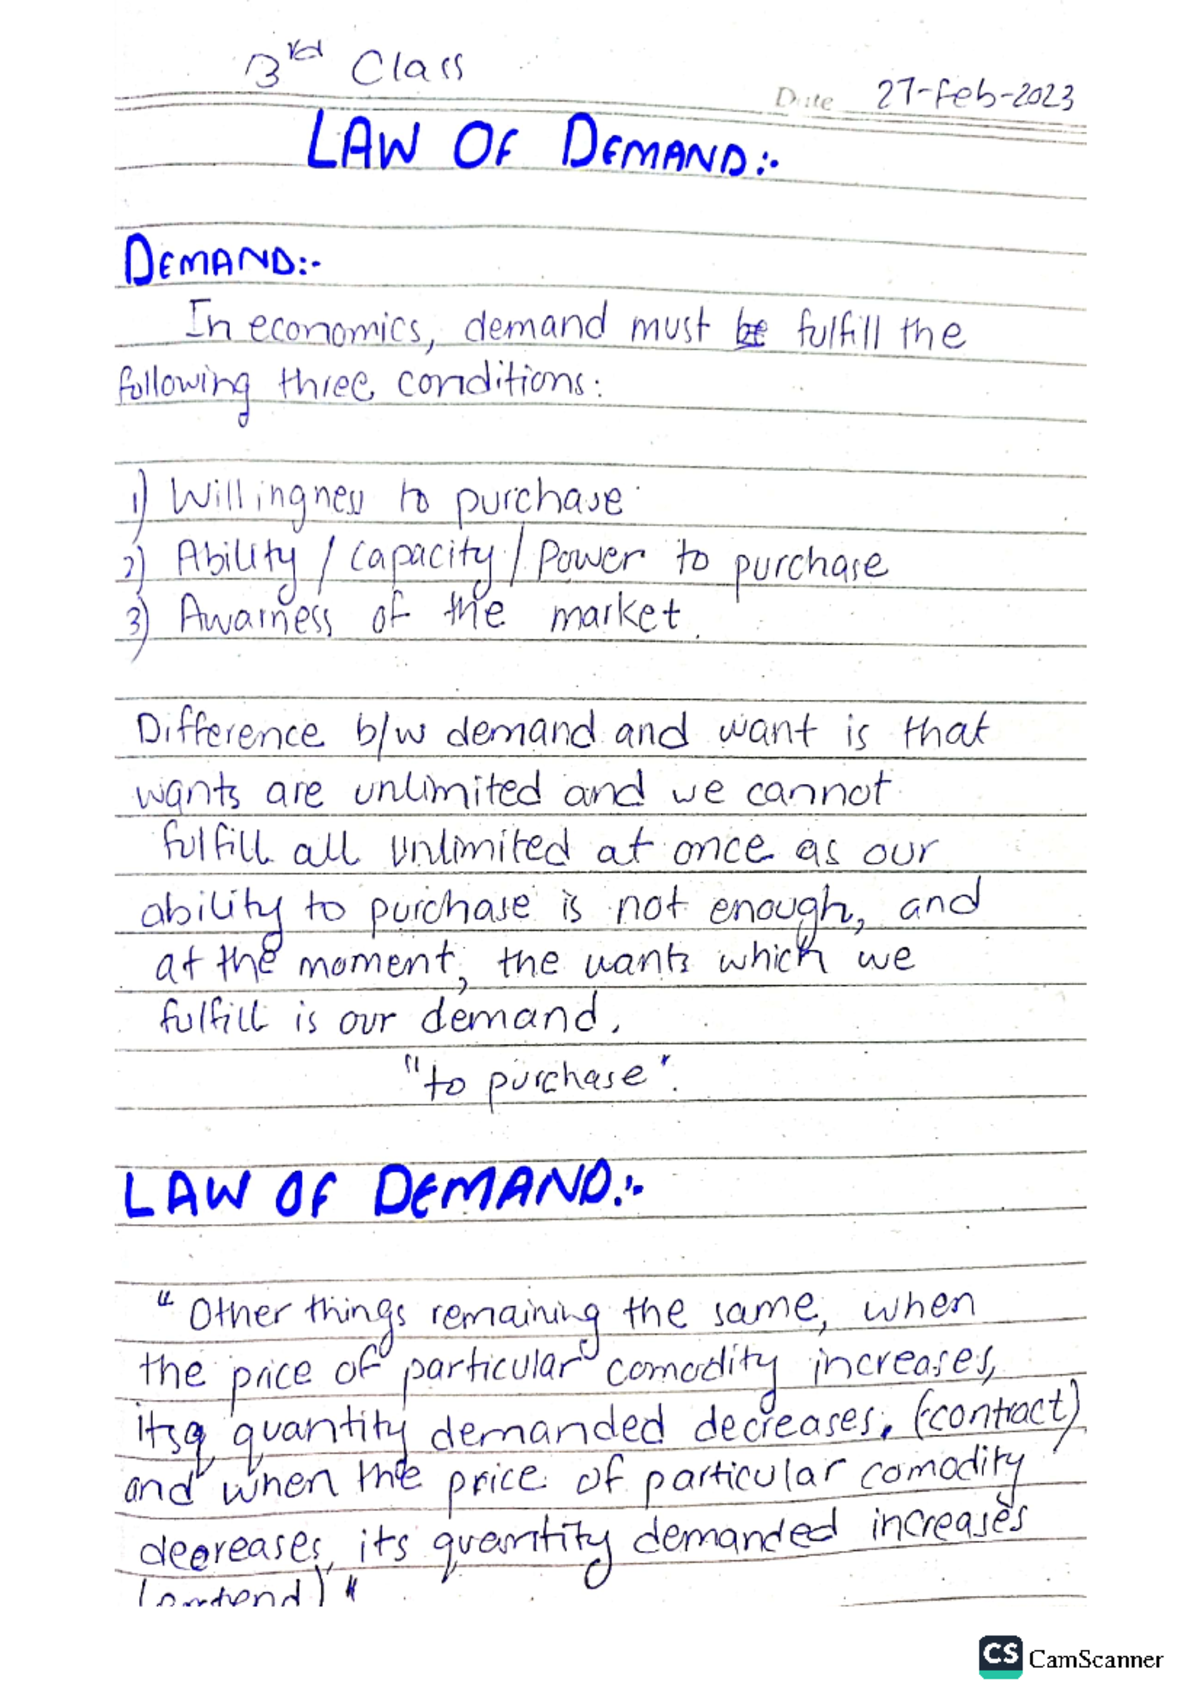 3rd Class
Date 27-Feb-2023
LAW OF DEMAND:-
DEMAND:-
In economics, demand must fulfill the
following three conditions:
1) Willingness to purchase
2) Ability / Capacity / Power to purchase
3) Awarness of the market.
Difference b/w demand and want is that
wants are unlimited and we cannot
fulfill all unlimited at once as our
ability to purchase is not enough, and
at the moment, the wants which we
fulfill is our demand.
"to purchase".
LAW OF DEMAND:-
"Other things remaining the same, when
the price of particular comodity increases,
its quantity demanded decreases, (contract)
and when the price of particular comodity
decreases, its quantity demanded increases
(extend)"
CS CamScanner